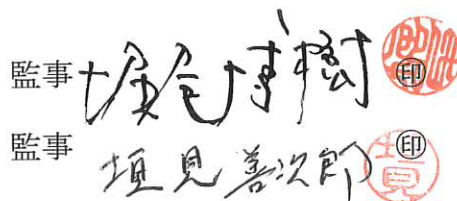 監事 博樹 ㊞
監事 垣見善次郎 ㊞